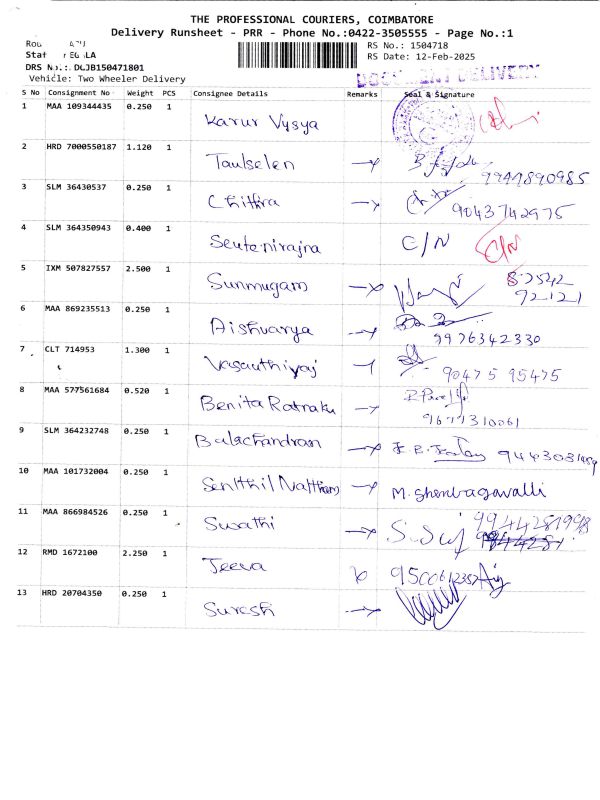 THE PROFESSIONAL COURIERS, COIMBATORE
Delivery Runsheet - PRR - Phone No.:0422-3505555 - Page No.:1
RS No.: 1504718
RS Date: 12-Feb-2025
DRS No.: DLJB150471801
Vehicle: Two Wheeler Delivery
DOCUMENT DELIVERY
S No Consignment No Weight PCS Consignee Details Remarks Seal & Signature
1 MAA 109344435 0.250 1 Karur Vysya
2 HRD 7000550187 1.120 1 Taulselen 9944890985
3 SLM 36430537 0.250 1 Chithra 9043742975
4 SLM 364350943 0.400 1 C/N C/N
5 IXM 507827557 2.500 1 Sunmugam
92121
6 MAA 869235513 0.250 1 Aishvarya 9976342330
7 CLT 714953 1.300 1 90475 95475
8 MAA 577561684 0.520 1 Benita Ratnaku
9677310061
9 SLM 364232748 0.250 1 Balachandran
10 MAA 101732004 0.250 1 M. Shenbagavalli
11 MAA 866984526 0.250 1 Swathi 9944281998
12 RMD 1672100 2.250 1 Jeeva
13 HRD 20704350 0.250 1 Suresh